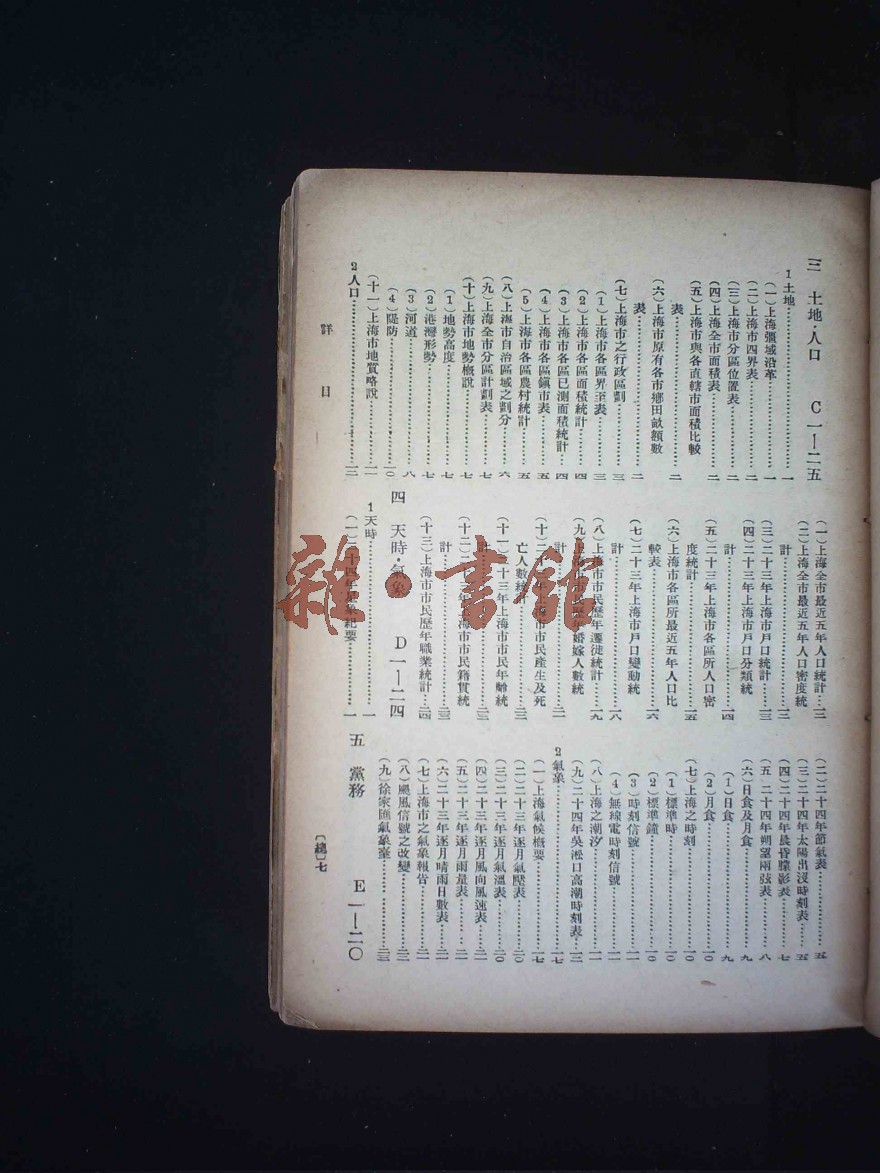 三　土地·人口　C一—二五
1土地……一
(一)上海疆域沿革……一
(二)上海市四界表……二
(三)上海市分區位置表……二
(四)上海全市面積表……二
(五)上海市與各直轄市面積比較
表……二
(六)上海市原有各市鄉田畝額數
表……二
(七)上海市之行政區劃……三
(1)上海市各區界至表……三
(2)上海市各區面積統計……四
(3)上海市各區已測面積統計……四
(4)上海市各區鎮市表……五
(5)上海市各區農村統計……五
(八)上海市自治區域之劃分……六
(九)上海全市分區計劃表……七
(十)上海市地勢概說……七
(1)地勢高度……七
(2)港灣形勢……七
(3)河道……八
(4)隄防……一〇
(十一)上海市地質略說……一一
2人口……一三
(一)上海全市最近五年人口統計…一三
(二)上海全市最近五年人口密度統
計……一三
(三)二十三年上海市戶口統計……一三
(四)二十三年上海市戶口分類統
計……一四
(五)二十三年上海市各區所人口密
度統計……一五
(六)上海市各區所最近五年人口比
較表……一六
(七)二十三年上海市戶口變動統
計……一八
(八)上海市市民歷年遷徙統計……一九
(九)上海市市民歷年婚嫁人數統
計……二一
(十)二十三年上海市市民產生及死
亡人數統計……二三
(十一)二十三年上海市市民年齡統
計……二三
(十二)二十三年上海市市民籍貫統
計……二三
(十三)上海市市民歷年職業統計……二四
四　天時·氣象　D一—二四
1天時……一
(一)二十四年星象紀要……一
(二)二十四年節氣表……五
(三)二十四年太陽出沒時刻表……五
(四)二十四年晨昏矇影表……七
(五)二十四年朔望兩弦表……八
(六)日食及月食……九
(1)日食……九
(2)月食……一〇
(七)上海之時刻……一〇
(1)標準時……一〇
(2)標準鐘……一〇
(3)時刻信號……一〇
(4)無線電時刻信號……一一
(八)上海之潮汐……一一
(九)二十四年吳淞口高潮時刻表……一三
2氣象……一七
(一)上海氣候概要……一七
(二)二十三年逐月氣壓表……二〇
(三)二十三年逐月氣溫表……二〇
(四)二十三年逐月風向風速表……二一
(五)二十三年逐月雨量表……二一
(六)二十三年逐月晴雨日數表……二一
(七)上海市之氣象報告……二一
(八)颶風信號之改變……二二
(九)徐家匯氣象臺……二三
五　黨務　E一—二〇
詳目
〔總〕七
雜·書館